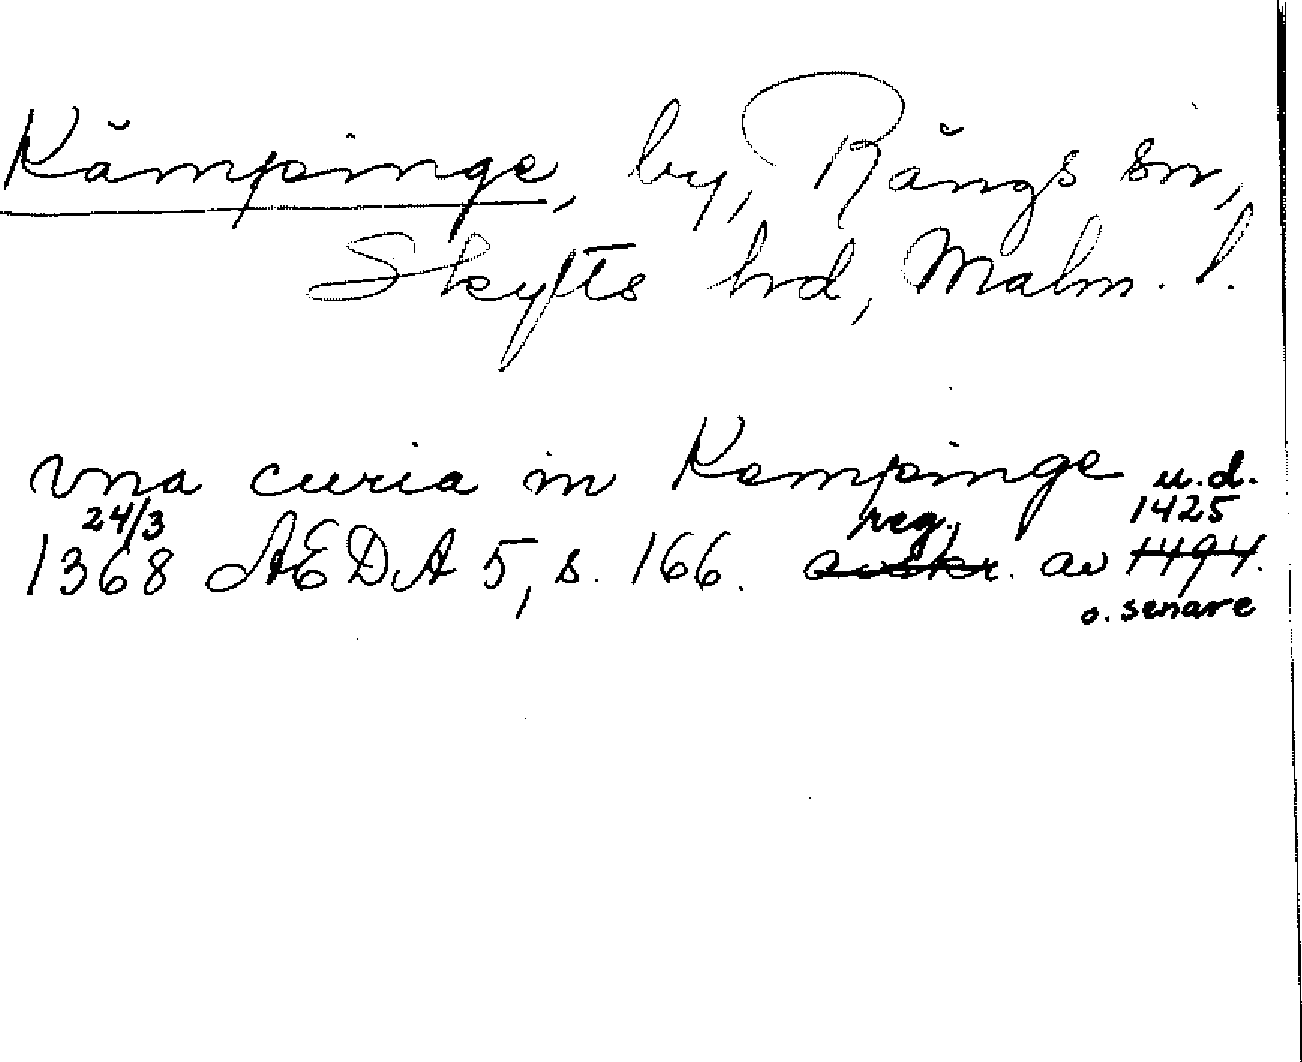 Kämpinge, by, Rängs sn,
Skytts hd, Malm. l.
vna curia in Kempinge u.d.
24/3 reg. 1425
1368 ÆDA 5, s. 166. avskr. av 1494.
o. senare